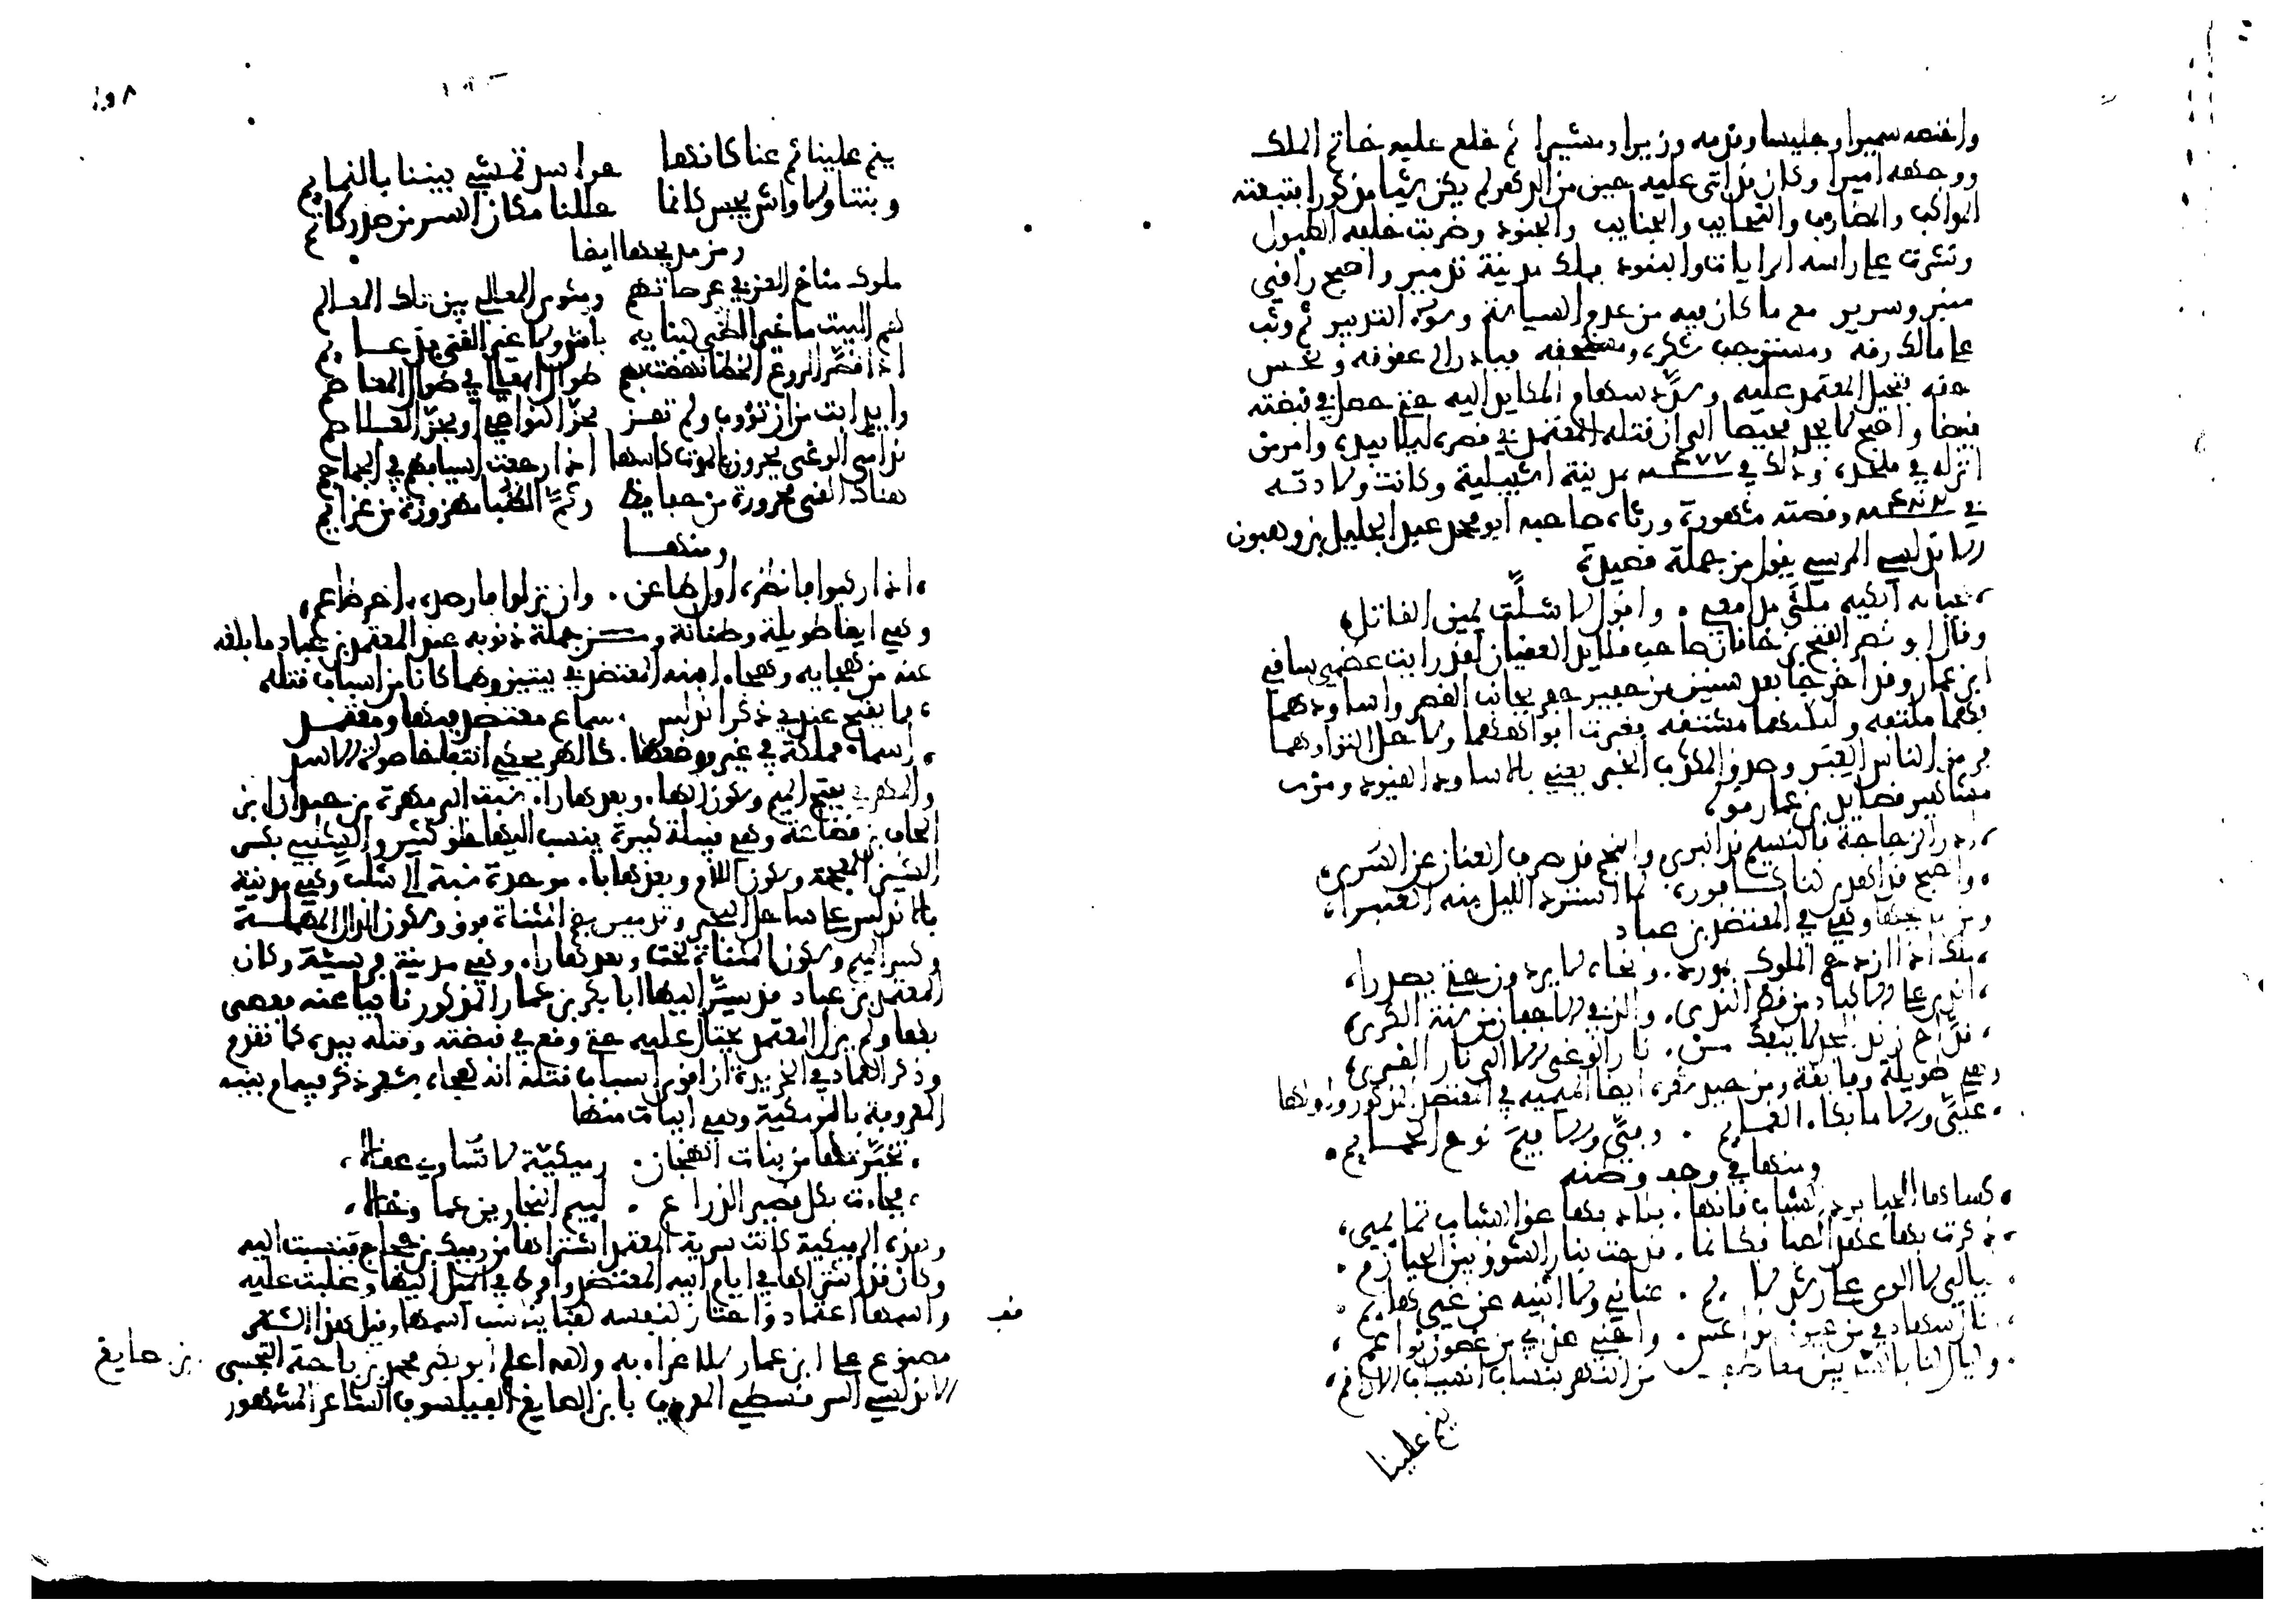 واختصه سميرا وجليسا وقدمه وزيرا ومشيرا ثم خلع عليه خاتم الملك
ووجهه اميرا وكان قد اتى عليه حين من الدهر لم يكن شيا مذكورا فتبعته
المواكب والمضارب والنجايب والجنايب والجنود وضربت خلفه الطبول
ونشرت على راسه الرايات والبنود فملك مدينة تدمير واصبح راقي
منبر وسرير مع ما كان فيه من عدم السياسة وسوء التدبير ثم وثب
على مالك رقه ومستوجب شكره ومستحقه فبادر الى عقوقه وبخس
حقه فتحيل المعتمد عليه وسدد سهام المكايد اليه حتى حصل في قبضته
قنيصا واصبح لا يجد محيصا الى ان قتله المعتمد في قصره ليلا بيده وامر من
انزله في ملحده وذلك في سنة ٤٧٧ بمدينة اشبيلية وكانت ولادته
في سنة وقصته مشهورة ورثاه صاحبه ابو محمد عبد الجليل بن وهبون
الاندلسي المرسي بقول من جملة قصيدة
عجبا له ابكيه ملئ مدامعي . واقول لا شلت يمين القاتل
وقال ابو نصر الفتح بن خاقان صاحب قلايد العقيان لقد رايت عظمي ساقي
ابن عمار وقد اخرجا بعد سنين من حفير حفر بجانب القصر واساودهما
بهما ملتفه ولبتهما مشتفه ما فغرت افواههما ولا حل التواوهما
فرمق الناس العبر وصدق المكذب الخبر يعني بالاساود القيود ومن
مشاهير قصايد بن عمار قوله
ادر الزجاجة فالنسيم قد انبرى والنجم قد صرف العنان عن السرى
والصبح قد اهدى لنا كافوره لما استرد الليل منه العنبرا
ومن مديحها وهي في المعتضد بن عباد
ملك اذا ازدحم الملوك بمورد . ونحاه لا يردون حتى يصدرا
اندى على الاكباد من قطر الندى . والذ في الاجفان من سنة الكرى
قداح زند المجد لا ينفك من . نار الوغى الا الى نار القرى
وهي طويلة وفايقة ومن جيد شعره ايضا الميمية في المعتضد المذكور واولها
علي والا ما بكاء الغمايم . وفي والا فيم نوح الحمايم
ومنها في وصف وطنه
كساها الحيا برد الشباب فانها . بلاد بها عق الشباب تمايمي
ذكرت بها عهد الصبا فكانما . قدحت بنار الشوق بين الحيازم
ليالي لا الوى على رشد لايم . عناني ولا اثنيه عن غي هايم
انال سهادي من عيون نواعس . واجني عذابي من غصون نواعم
وليل لنا بالسد بين معاطف من النهر ينساب انسياب الاراقم
ينم علينا
ينم علينا ثم عنا كانها حواسد تمشي بيننا بالنمايم
وبتنا ولا واش يحس كانما حللنا مكان السر من صدر كاتم
ومن مديحها ايضا
ملوك مناخ العز في عرصاتهم ومثوى المعالي بين تلك المعالم
هم البيت ما غير الظبى لبنايه باس ولا غير القنى بدعايم
اذا قصر الروع الخطا نهضت بهم طوال العوالي في طوال المعاصم
وايد ابت من ان تؤوب ولم تفز بجز النواصي او بحز الغلاصم
ندامى الوغى يجرون بالموت كاسها اذا رجعت اسيافهم في الجماجم
هناك القنى مجرورة من حفايظ وثم الظبا مهزوزة من عزايم
ومنها
اذا ركبوا فانظره اول طاعن . وان نزلوا فارصده اخر طاعم
وهي ايضا طويلة وطنانة ومن جملة ذنوبه عند المعتمد بن عباد ما بلغه
عنه من هجايه وهجاء ابيه المعتضد في بيتين وهما كانا من اسباب قتله
مما يقبح عندي ذكر اندلس . سماع معتضد فيها ومعتمد
اسماء مملكة في غير موضعها . كالهر يحكي انتفاخا صولة الاسد
والمهري بفتح الميم وسكون الهاء . وبعدها راء . نسبة الى مهرة بن حيدان ابن
الحاف بن قضاعة وهي قبيلة كبيرة ينسب اليها خلق كثير والشلبي بكسر
الشين المعجمة وسكون اللام وبعدها باء . موحدة نسبة الى شلب وهي مدينة
بالاندلس على ساحل البحر وتدمير بضم المثناة فوق وسكون الدال المهملة
وكسر الميم وسكون المثناة تحت وبعدها راء . وهي مدينة مرسية وكان
المعتمد بن عباد قد سير اليها ابا بكر بن عمار المذكور نايبا عنه فعصى
بها ولم يزل المعتمد يحتال عليه حتى وقع في قبضته وقتله بيده كما تقدم
وذكر العماد في الخريدة ان اقوى اسباب قتله انه هجاه بشعر ذكر فيه ام بنيه
المعروفة بالرميكية وهي ابيات منها
تخيرتها من بنات الهجان . رميكية لا تساوي عقالا
فجاءت بكل قصير الذراع . لييم النجارين عما وخالا
وهذه الرميكية كانت سرية المعتمد اشتراها من رميك بن حجاج فنسبت اليه
وكان قد اشتراها في ايام ابيه المعتضد وافرط في الميل اليها وغلبت عليه
واسمها اعتماد واختار لنفسه لقبا يناسب اسمها وقيل هذا الشعر
مصنوع على ابن عمار للاغراء به والله اعلم ابو بكر محمد بن باجة التجيبي
بن صايغ
الاندلسي السرقسطي المعروف بابن الصايغ الفيلسوف الشاعر المشهور